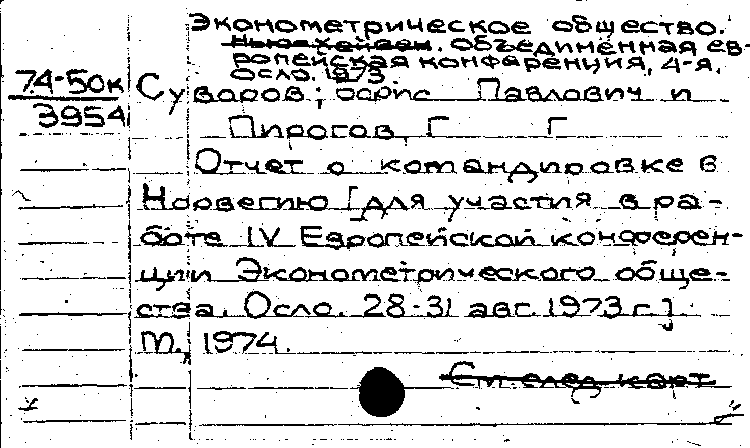 Эконометрическое общество.
Нью-Хейвен. Объединенная ев-
ропейская конференция, 4-я.
Осло. 1973.
74-50к
3954
Суваров, Борис Павлович и
Пирогов, Г Г
Отчет о командировке в
Норвегию [для участия в ра-
боте IV Европейской конферен-
ции Эконометрического обще-
ства. Осло. 28-31 авг. 1973 г.].
М., 1974.
См. след. карт